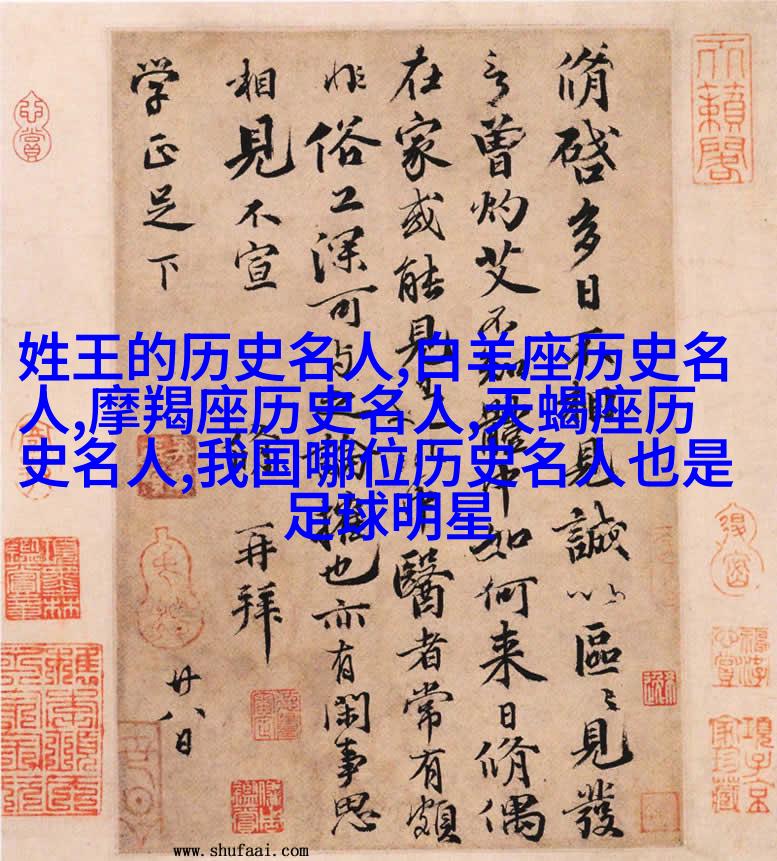 姓王的历史名人,白羊座历史名
人,摩羯座历史名人,天蝎座历
史名人,我国哪位历史名人也是
足球明星
脩啓多日不相見誠以區〻見發
言曾灼艾不知體中如何來日脩偶
在家或能見醫者常有頗
非俗工深可与之論權也亦有閑事思
相見不宣 脩再拜
廿八日
学正足下
天籟閣
www.shufaai.com